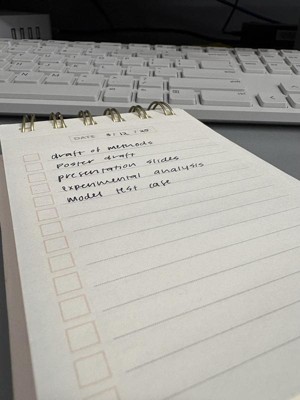 DATE
draft of methods
poster draft
presentation slides
experimental analysis
model test case